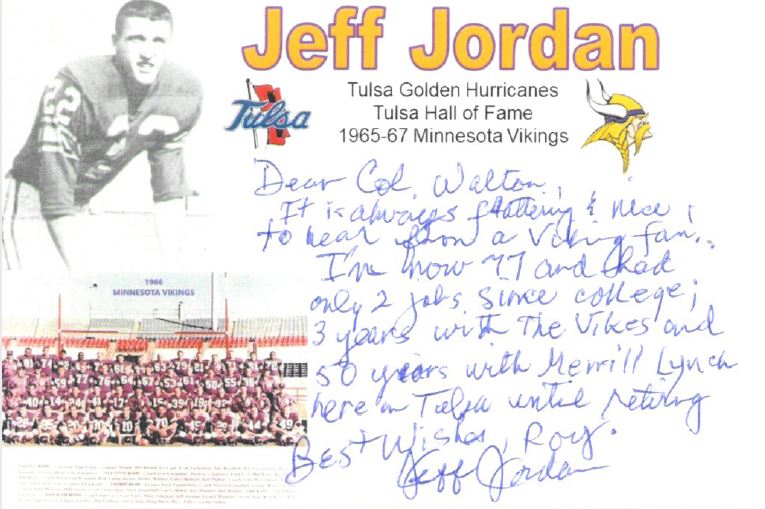 Jeff Jordan
Tulsa
Tulsa Golden Hurricanes
Tulsa Hall of Fame
1965-67 Minnesota Vikings
22
Dear Col. Walton,
It is always flattering & nice
to hear from a Viking fan.
I'm now 77 and had
only 2 jobs since college;
3 years with The Vikes and
50 years with Merrill Lynch
here in Tulsa until retiring
Best Wishes, Roy.
Jeff Jordan
1966
MINNESOTA VIKINGS